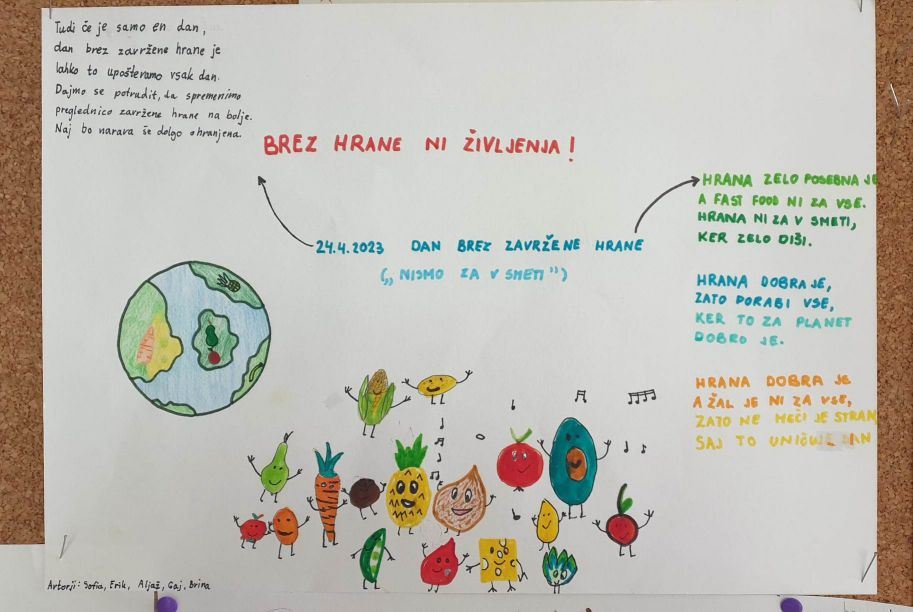 Tudi če je samo en dan,
dan brez zavržene hrane je
lahko to upoštevamo vsak dan.
Dajmo se potrudit, da spremenimo
preglednico zavržene hrane na bolje.
Naj bo narava še dolgo ohranjena.
BREZ HRANE NI ŽIVLJENJA!
24.4.2023 DAN BREZ ZAVRŽENE HRANE
(„NISMO ZA V SMETI")
HRANA ZELO POSEBNA JE
A FAST FOOD NI ZA VSE.
HRANA NI ZA V SMETI,
KER ZELO DIŠI.
HRANA DOBRA JE,
ZATO PORABI VSE,
KER TO ZA PLANET
DOBRO JE.
HRANA DOBRA JE
A ŽAL JE NI ZA VSE,
ZATO NE MEČI JE STRAN
SAJ TO UNIČUJE
Avtorji: Sofia, Erik, Aljaž, Gaj, Brina